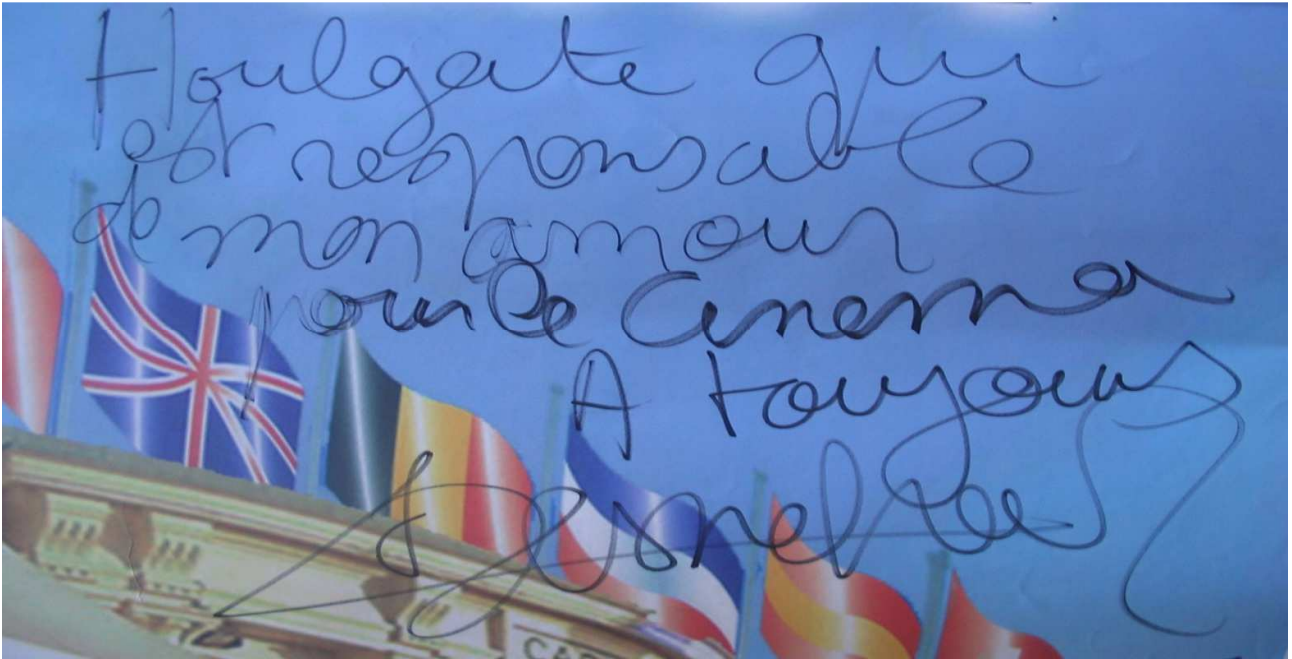 Houlgate qui
est responsable
de mon amour
pour le Cinema
A toujours
Lionel